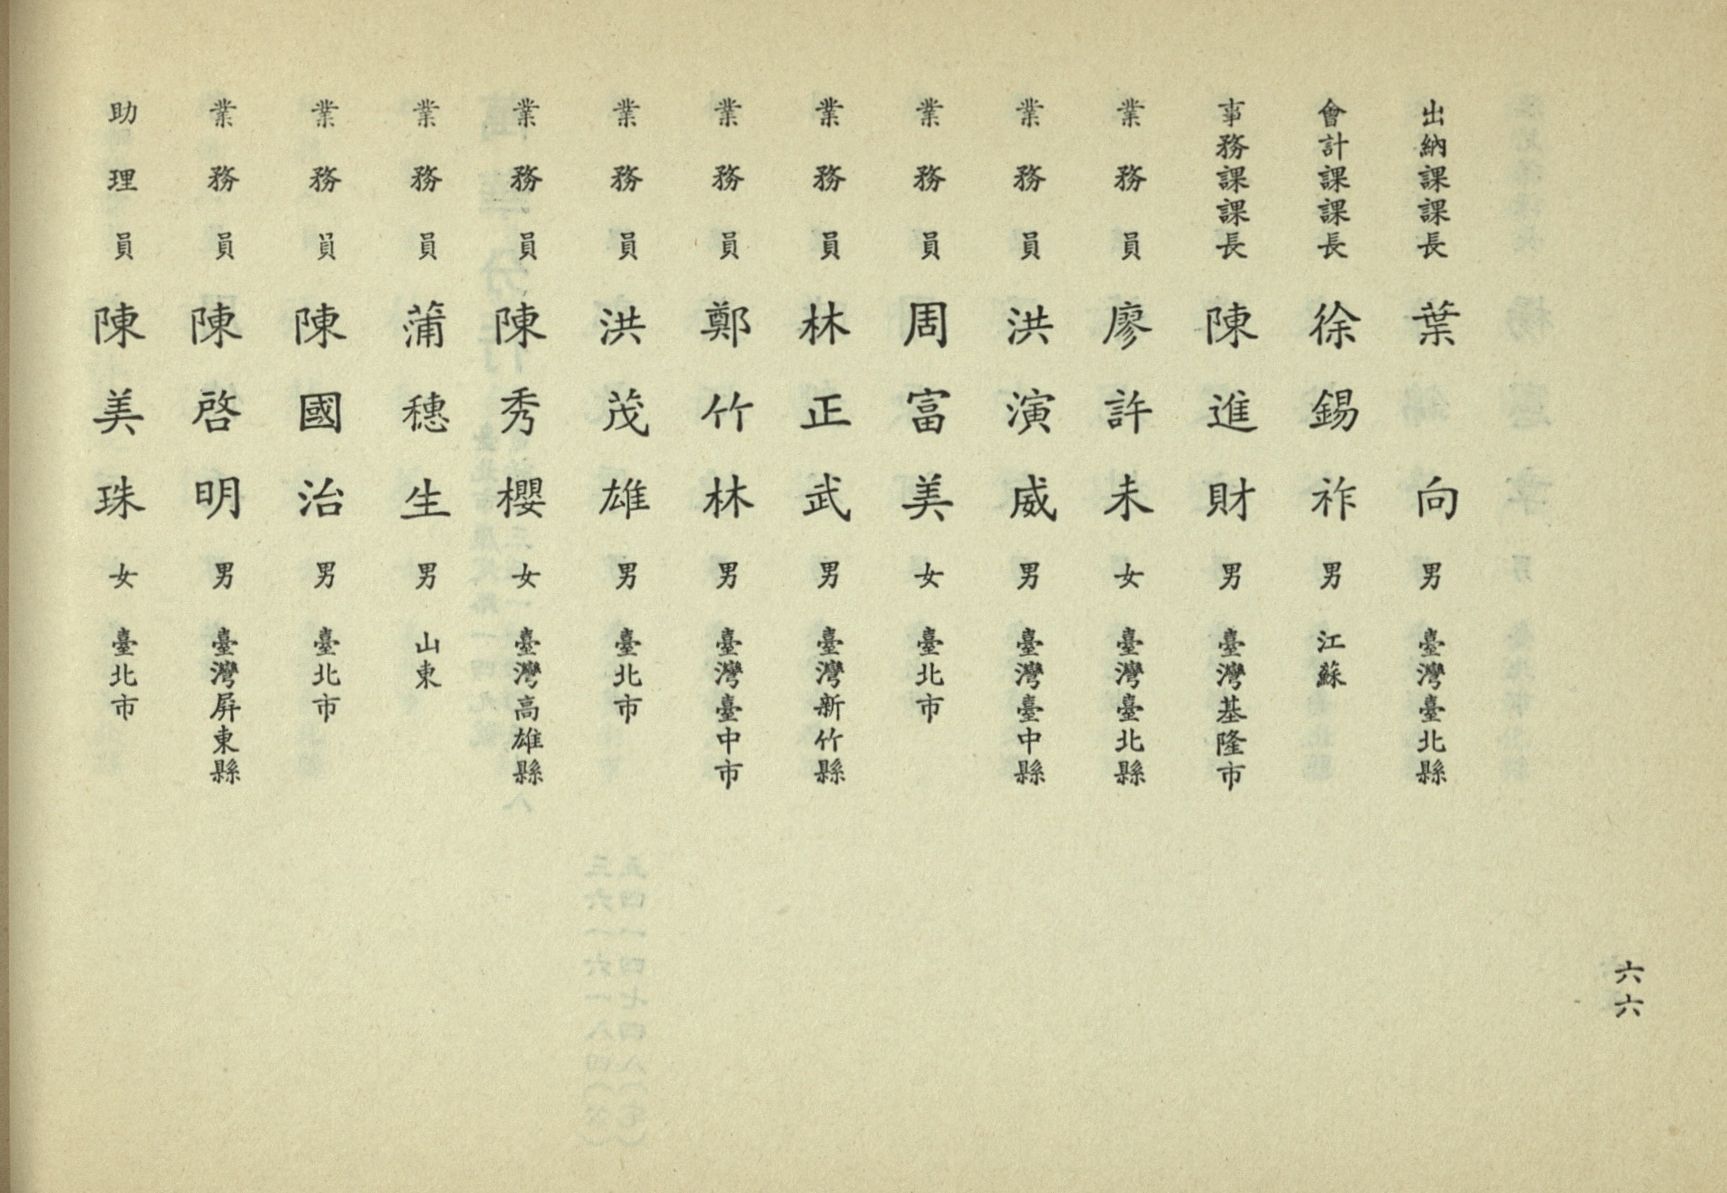 六六
出納課課長 葉向 男 臺灣臺北縣
會計課課長 徐錫祚 男 江蘇
事務課課長 陳進財 男 臺灣基隆市
業務員 廖許未 女 臺灣臺北縣
業務員 洪演威 男 臺灣臺中縣
業務員 周富美 女 臺北市
業務員 林正武 男 臺灣新竹縣
業務員 鄭竹林 男 臺灣臺中市
業務員 洪茂雄 男 臺北市
業務員 陳秀櫻 女 臺灣高雄縣
業務員 蒲穗生 男 山東
業務員 陳國治 男 臺北市
業務員 陳啓明 男 臺灣屏東縣
助理員 陳美珠 女 臺北市